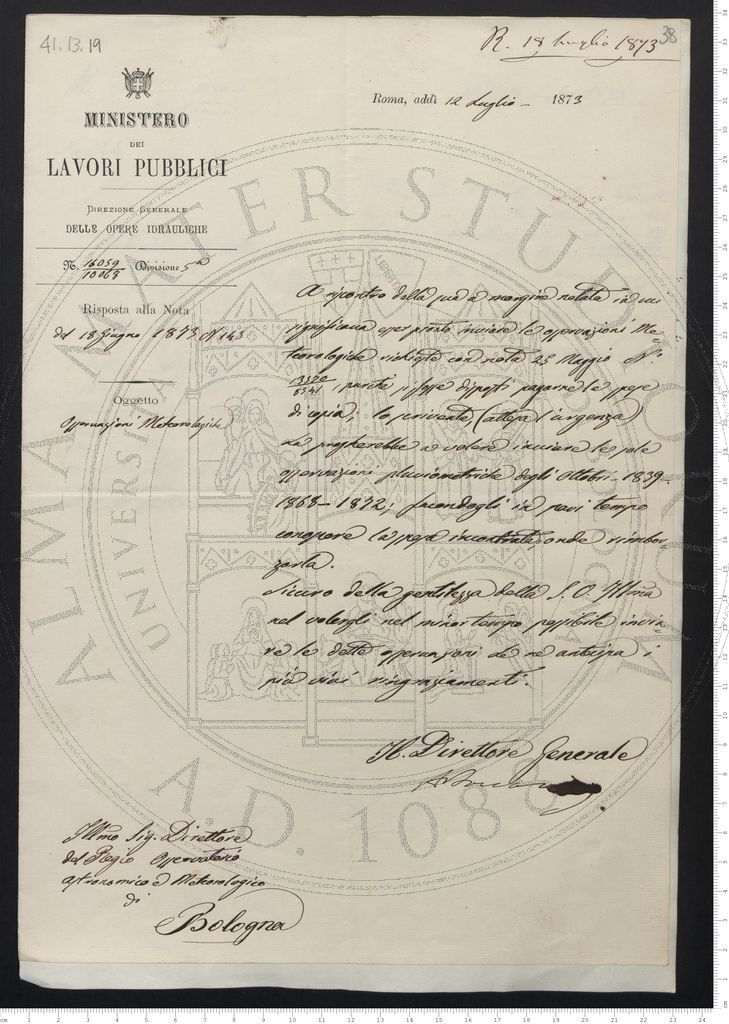 41.13.19
R. 18 luglio 1873
38
MINISTERO
DEI
LAVORI PUBBLICI
DIREZIONE GENERALE
DELLE OPERE IDRAULICHE
N. 16059/10068 Divisione 5a
Risposta alla Nota
del 18 Giugno 1873 N 143
Oggetto
Osservazioni Meteorologiche
Roma, addì 12 Luglio 1873
A riscontro della qui a margine notata in cui
significava esser pronto inviare le osservazioni Me-
teorologiche richieste con nota 25 Maggio No
, purché si fosse disposti pagarne le spese
di copia; lo scrivente, (attesa l'urgenza)
La pregherebbe a volere inviare le sole
osservazioni pluviometriche degli Ottobri 1839-
1868-1872; facendogli in pari tempo
conoscere la spesa incontrata, onde rimbor
sarla.
Sicuro della gentilezza della S. V. Illma
nel volergli nel minor tempo possibile invia
re le dette osservazioni Le ne anticipa i
più vivi ringraziamenti.
Il Direttore Generale
Illmo Sig. Direttore
del Regio Osservatorio
Astronomico e Meteorologico
di
Bologna
ALMA MATER STUDIORUM
A.D. 1088